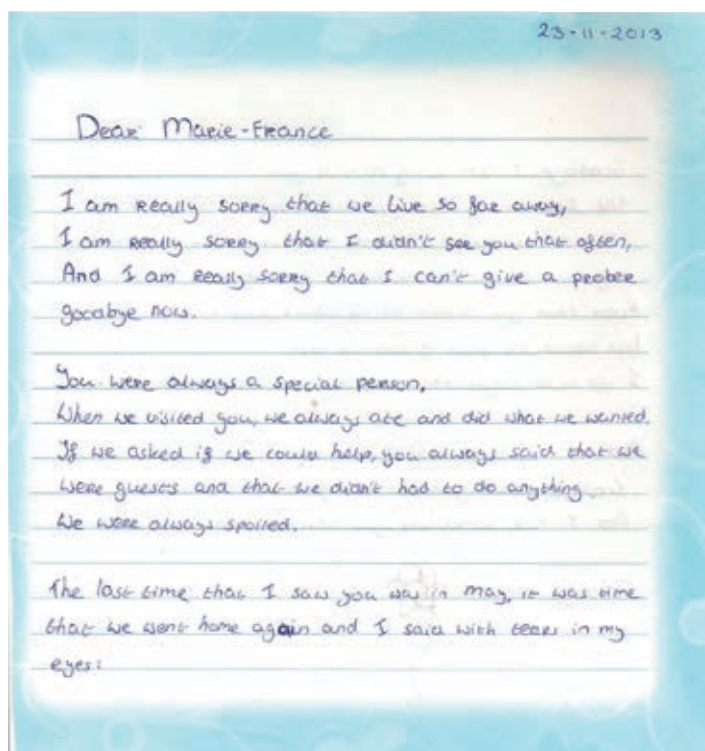 23-11-2013
Dear Marie-France
I am really sorry that we live so far away,
I am really sorry that I didn't see you that often,
And I am really sorry that I can't give a prober
goodbye now.
You were always a special person.
When we visited you, we always ate and did what we wanted.
If we asked if we could help, you always said that we
were guests and that we didn't had to do anything.
We were always spoiled.
The last time that I saw you was in may, it was time
that we went home again and I said with tears in my
eyes: